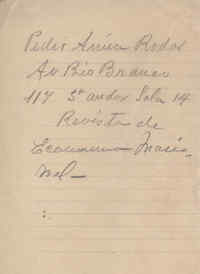 Pedro Amım Rodos
Av Rio Branco
117 3º andar Sala 14
Revista de
Economia Nacio
nal